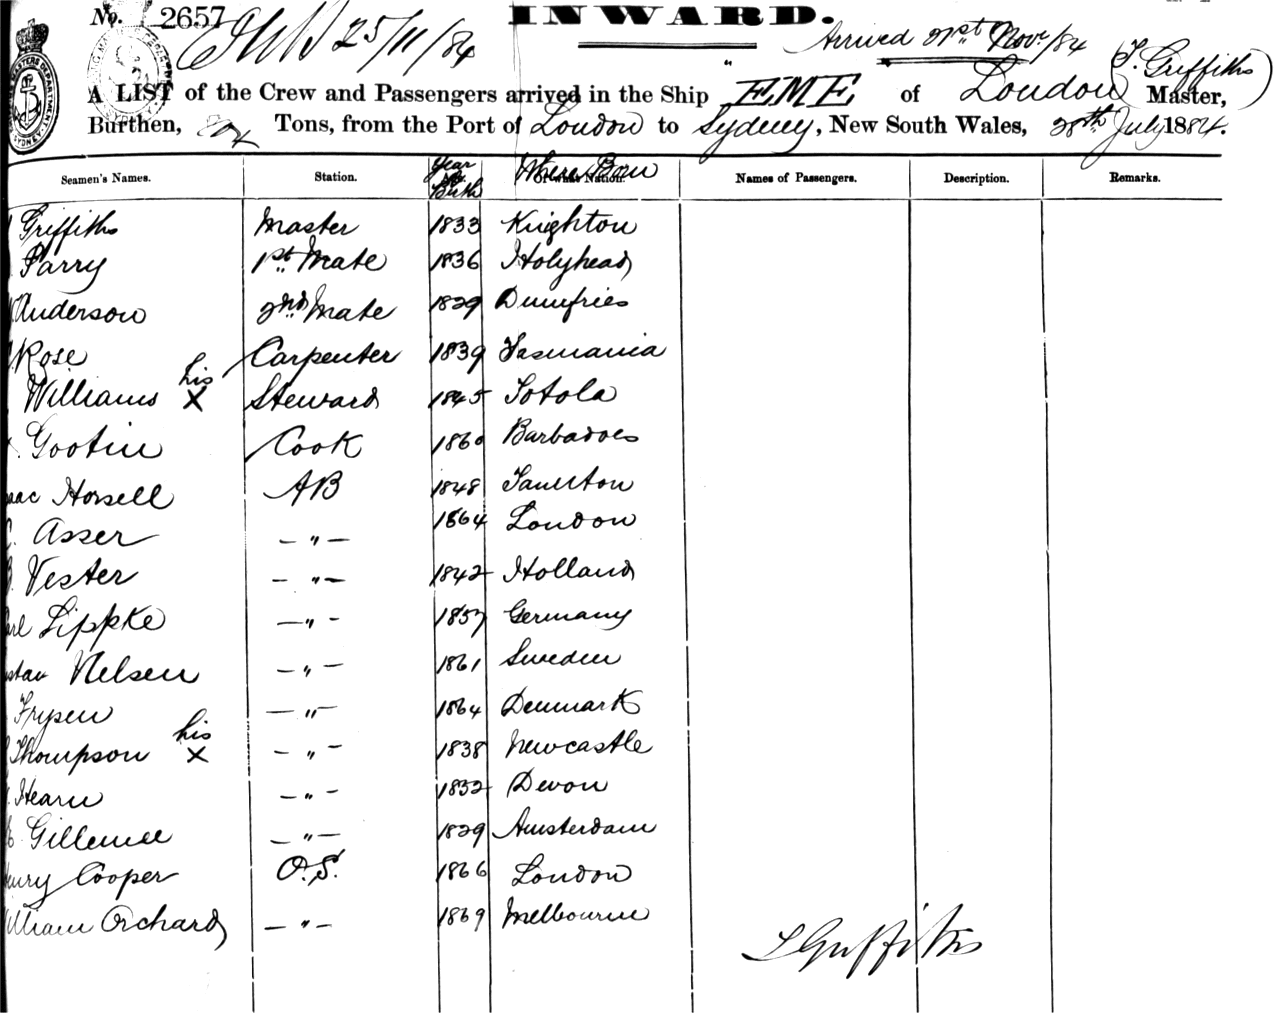 No. 2657 INWARD.
25/11/84 Arrived 21st Nov. /84
A LIST of the Crew and Passengers arrived in the Ship EME of London (T. Griffiths) Master,
Burthen, Tons, from the Port of London to Sydney, New South Wales, 28th July 1884.
Seamen's Names. Station. Year of Birth Where Born Of what Nation. Names of Passengers. Description. Remarks.
Griffiths Master 1833 Knighton
Parry 1st Mate 1836 Holyhead
Anderson 2nd Mate 1829 Dumfries
Rose Carpenter 1839 Tasmania
Williams his X Steward 1845 Totola
Gootin Cook 1860 Barbadoes
Horsell AB 1848 Taunton
Asser - " - 1864 London
Vester - " - 1842 Holland
Lippke - " - 1857 Germany
Nelsen - " - 1861 Sweden
Frysen - " - 1864 Denmark
Thompson his X - " - 1838 Newcastle
Hearn - " - 1832 Devon
- " - 1829 Amsterdam
Cooper O.S. 1866 London
William Orchard - " - 1869 Melbourne
Griffiths